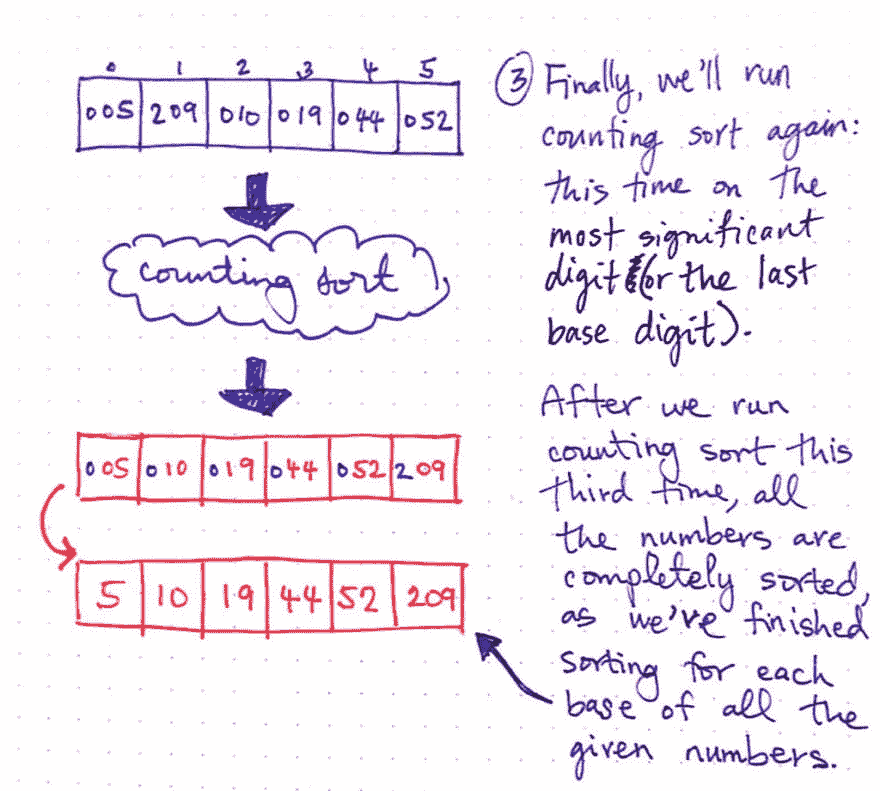 0 1 2 3 4 5
005 209 010 019 044 052
counting sort
005 010 019 044 052 209
5 10 19 44 52 209
③ Finally, we'll run
counting sort again:
this time on the
most significant
digit (or the last
base digit).
After we run
counting sort this
third time, all
the numbers are
completely sorted,
as we've finished
sorting for each
base of all the
given numbers.